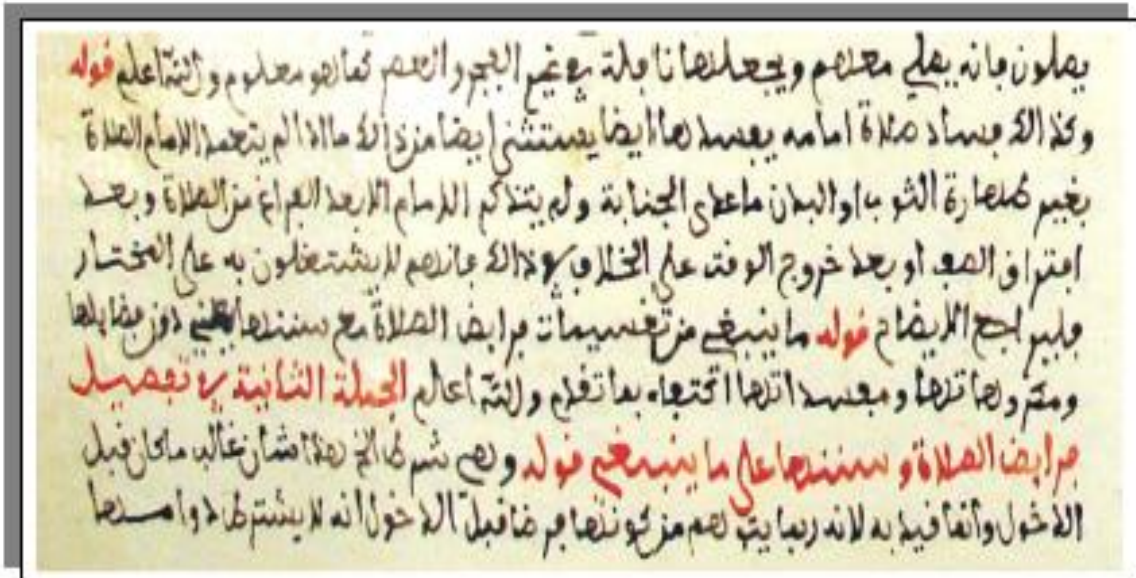 يصلون فإنه يصلي معهم ويجعلها نافلة في غير الفجر والعصر كما هو معلوم والله أعلم قوله
وكذالك فساد صلاة امامه يفسدها ايضا يستثنى ايضا من ذالك ما اذا لم يتعمد الامام الصلاة
بغير طهارة الثوب او البدن ما عدى الجنابة ولم يتذكر الامام الا بعد الفراغ من الصلاة وبعد
افتراق الصف او بعد خروج الوقت على الخلاف في ذالك فإنهم لا يشتغلون به على المختار
فليراجع الايضاح قوله ما ينبغي من تقسيمات فرايض الصلاة مع سننها يعني دون فضايلها
ومكروهاتها ومفسداتها اكتفاء بما تقدم والله أعلم الجملة الثانية في تفصيل
فرايض الصلاة وسننها على ما ينبغي قوله وهي شرط الخ هذا شأن غالب ما كان قبل
الدخول وأنما قيد به لانه ربما يتوهم من كونها فرضا قبل الدخول انه لا يشترط دوامها